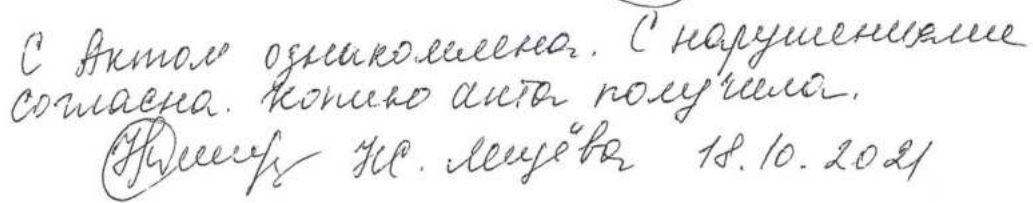 С Актом ознакомлена. С нарушениями
согласна. Копию акта получила.
18.10.2021